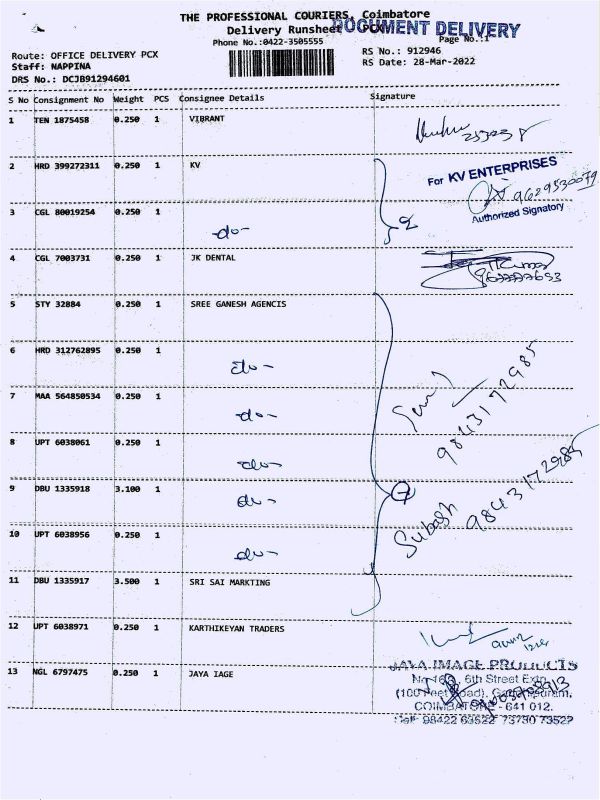 THE PROFESSIONAL COURIERS, Coimbatore
Delivery Runsheet PCX
DOCUMENT DELIVERY
Phone No.:0422-3505555
Page No.:1
Route: OFFICE DELIVERY PCX
RS No.: 912946
Staff: NAPPINA
RS Date: 28-Mar-2022
DRS No.: DCJB91294601
S No Consignment No Weight PCS Consignee Details Signature
1 TEN 1875458 0.250 1 VIBRANT
2 HRD 399272311 0.250 1 KV
For KV ENTERPRISES
9629530079
Authorized Signatory
3 CGL 80019254 0.250 1 -do- 2
4 CGL 7003731 0.250 1 JK DENTAL
5 STY 32884 0.250 1 SREE GANESH AGENCIS
6 HRD 312762895 0.250 1 -do-
9843172985
7 MAA 564850534 0.250 1 -do-
8 UPT 6038061 0.250 1 -do-
9 DBU 1335918 3.100 1 -do- 7
Subash 9843172985
10 UPT 6038956 0.250 1 -do-
11 DBU 1335917 3.500 1 SRI SAI MARKTING
12 UPT 6038971 0.250 1 KARTHIKEYAN TRADERS
13 NGL 6797475 0.250 1 JAYA IAGE
JAYA IMAGE PRODUCTS
6th Street Extn.
(100 Feet Road),
COIMBATORE - 641 012.
Cell: 98422 63522 73730 73522